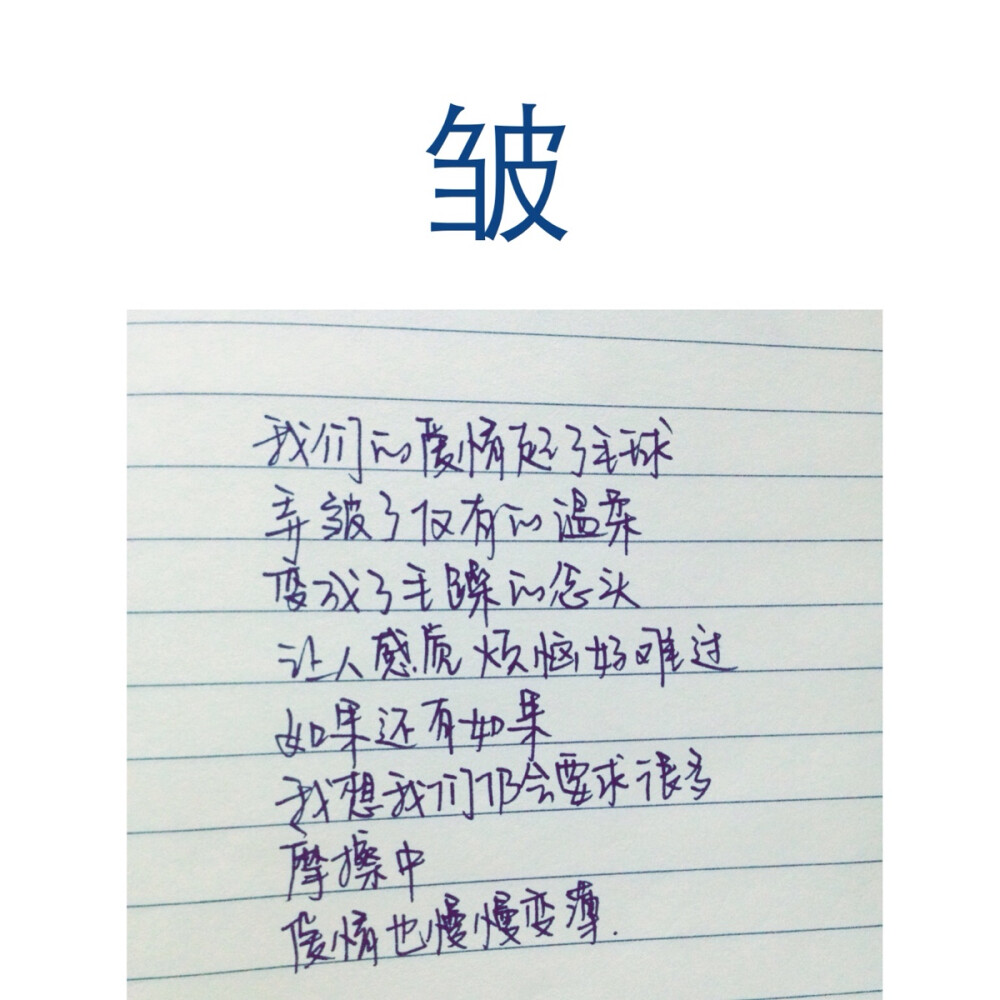 皱
我们的爱情起了毛球
弄皱了仅有的温柔
变成了毛躁的念头
让人感觉烦恼好难过
如果还有如果
我想我们仍会要求很多
摩擦中
爱情也慢慢变薄.